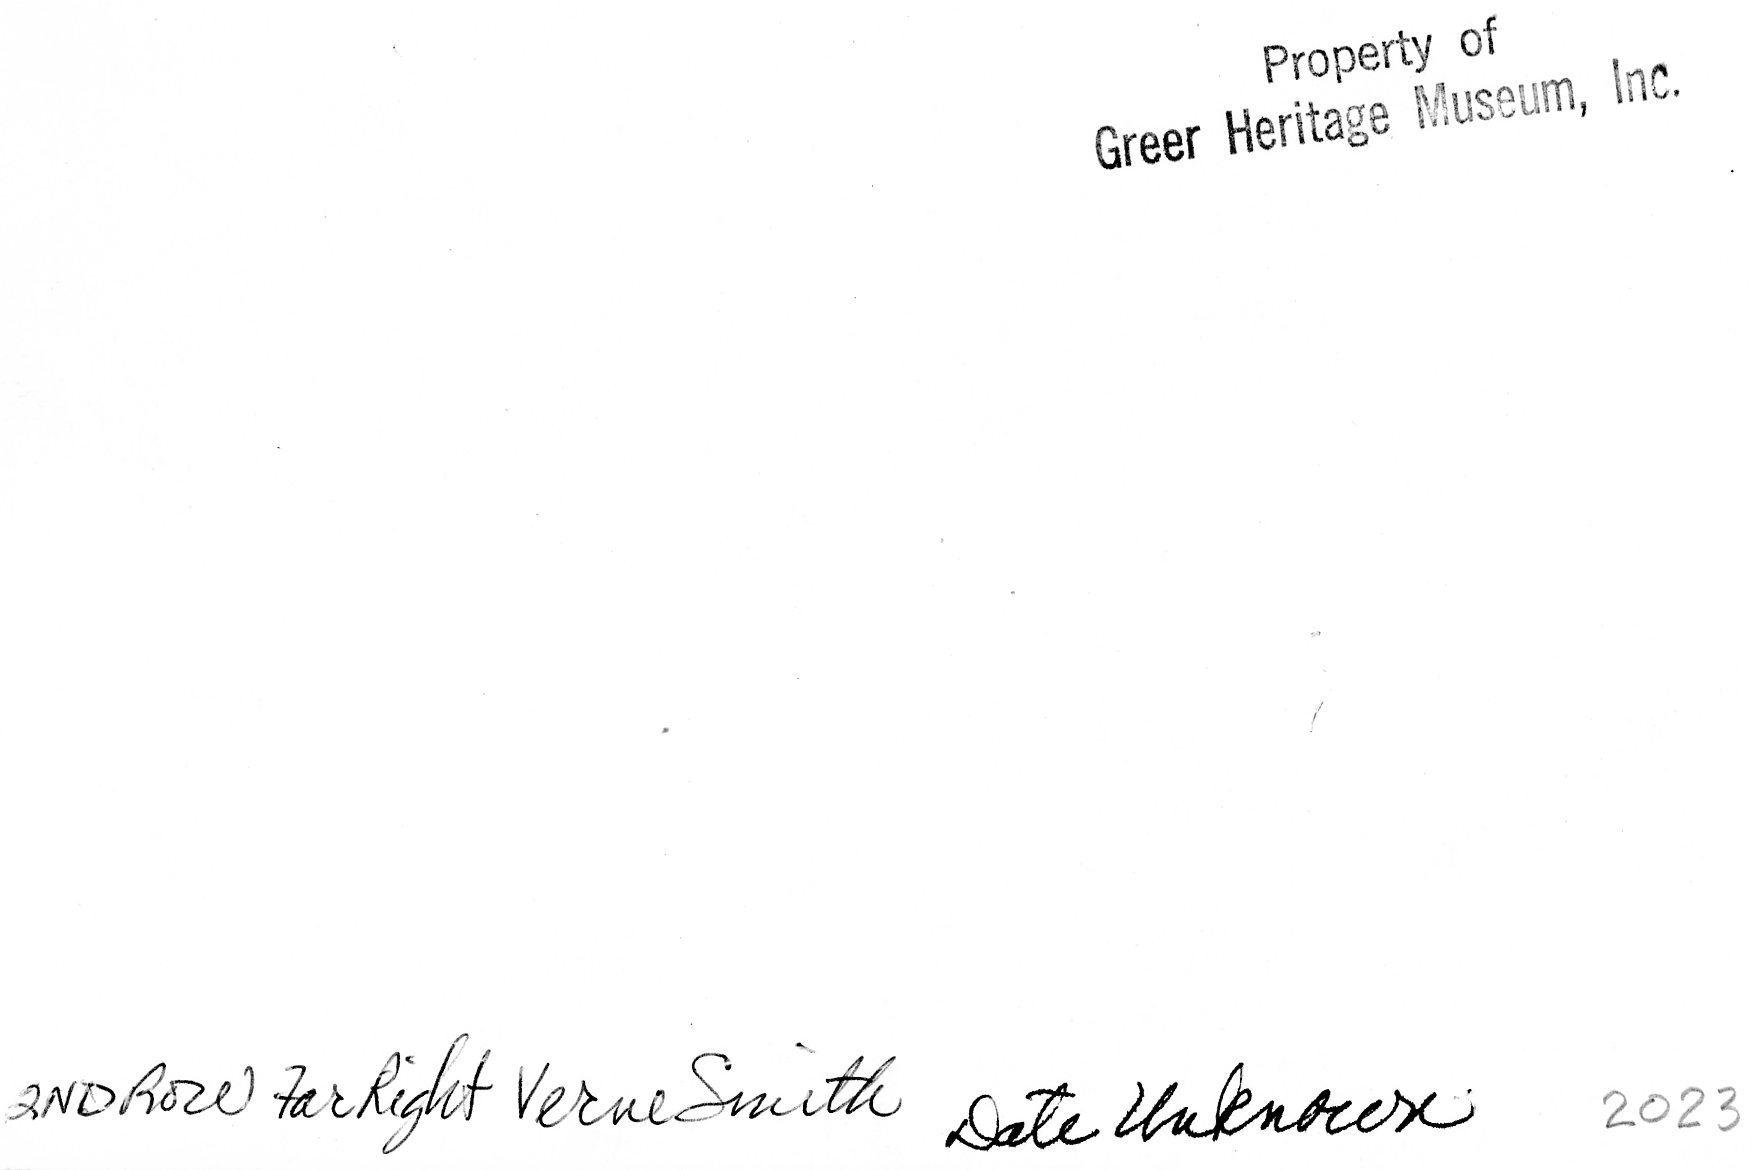 Property of
Greer Heritage Museum, Inc.
2ND Row Far Right Verne Smith Date Unknown 2023